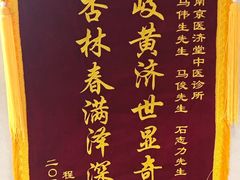 南京医济堂中医诊所
马伟生先生 马俊先生 石志力先生
岐黄济世显奇
杏林春满泽深
程
二〇